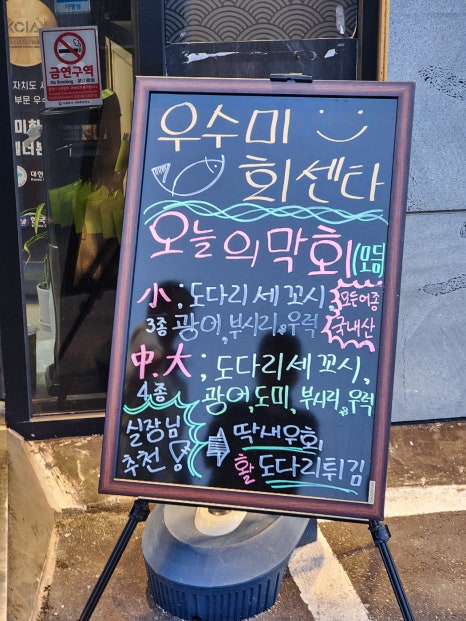 금연구역
No Smoking
우수미
회센타
오늘의막회(모듬)
小; 도다리세꼬시, 모든어종
3종 광어, 부시리, 우럭 국내산
中.大; 도다리세꼬시,
4종 광어,도미,부시리,우럭
실장님 딱새우회,
추천 활 도다리튀김